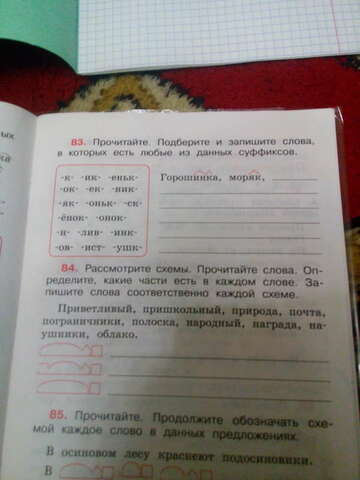 83. Прочитайте. Подберите и запишите слова,
в которых есть любые из данных суффиксов.
-к- -ик- -еньк-
-ок- -ек- -ник-
-як- -оньк- -ск-
-ёнок- -онок-
-н- -лив- -инк-
-ов- -ист- -ушк-
Горошинка, моряк,
84. Рассмотрите схемы. Прочитайте слова. Оп-
ределите, какие части есть в каждом слове. За-
пишите слова соответственно каждой схеме.
Приветливый, пришкольный, природа, почта,
пограничники, полоска, народный, награда, на-
ушники, облако.
85. Прочитайте. Продолжите обозначать схе-
мой каждое слово в данных предложениях.
В осиновом лесу краснеют подосиновики.
В